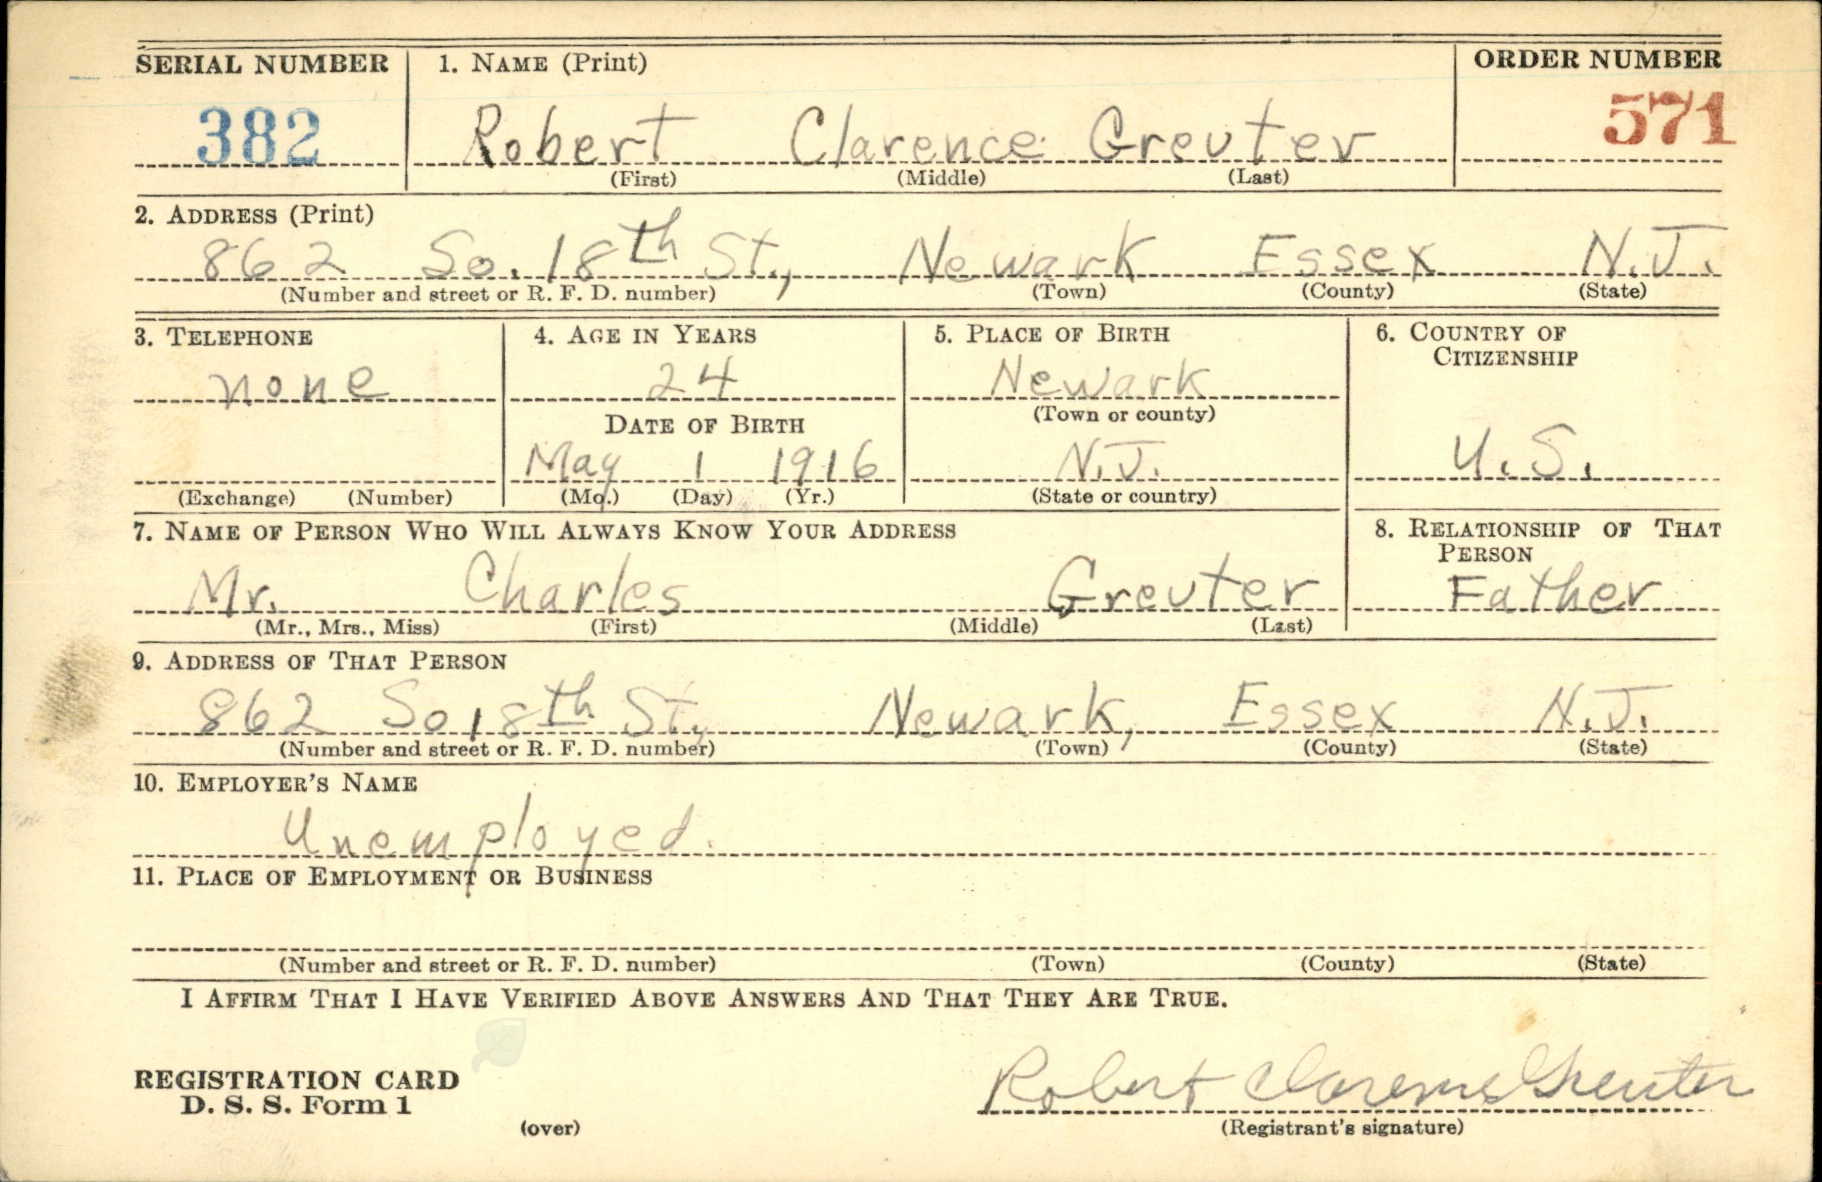 SERIAL NUMBER 1. NAME (Print) ORDER NUMBER
382 Robert Clarence Greuter 571
(First) (Middle) (Last)
2. ADDRESS (Print)
862 So. 18th St., Newark Essex N.J.
(Number and street or R. F. D. number) (Town) (County) (State)
3. TELEPHONE 4. AGE IN YEARS 5. PLACE OF BIRTH 6. COUNTRY OF
CITIZENSHIP
none 24 Newark
(Town or county)
DATE OF BIRTH
May 1 1916 N.J. U.S.
(Exchange) (Number) (Mo.) (Day) (Yr.) (State or country)
7. NAME OF PERSON WHO WILL ALWAYS KNOW YOUR ADDRESS 8. RELATIONSHIP OF THAT
PERSON
Mr. Charles Greuter Father
(Mr., Mrs., Miss) (First) (Middle) (Last)
9. ADDRESS OF THAT PERSON
862 So 18th St., Newark, Essex N.J.
(Number and street or R. F. D. number) (Town) (County) (State)
10. EMPLOYER'S NAME
Unemployed.
11. PLACE OF EMPLOYMENT OR BUSINESS
(Number and street or R. F. D. number) (Town) (County) (State)
I AFFIRM THAT I HAVE VERIFIED ABOVE ANSWERS AND THAT THEY ARE TRUE.
REGISTRATION CARD
D. S. S. Form 1
Robert Clarence Greuter
(over) (Registrant's signature)